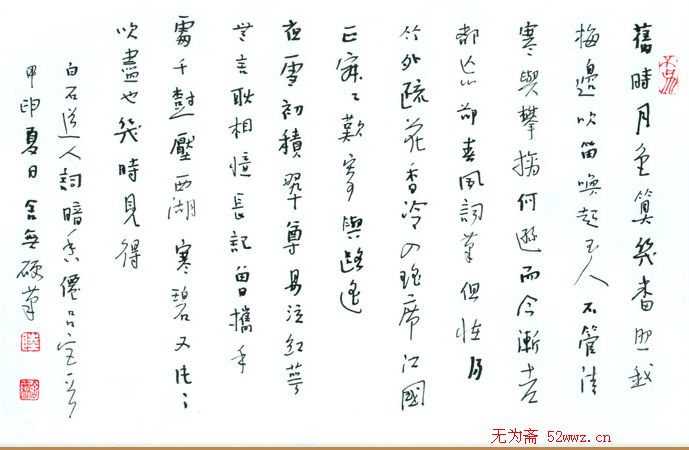 舊時月色算幾番照我
梅邊吹笛喚起玉人不管清
寒與攀摘何遜而今漸老
都忘卻春風詞筆但怪得
竹外疏花香冷入瑤席江國
正寂〻歎寄與路遙
夜雪初積翠尊易泣紅萼
無言耿相憶長記曾攜手
處千樹壓西湖寒碧又片〻
吹盡也幾時見得
白石道人詞暗香僊呂宮一首
甲申夏日舍無硬筆
无为斋 52wwz.cn